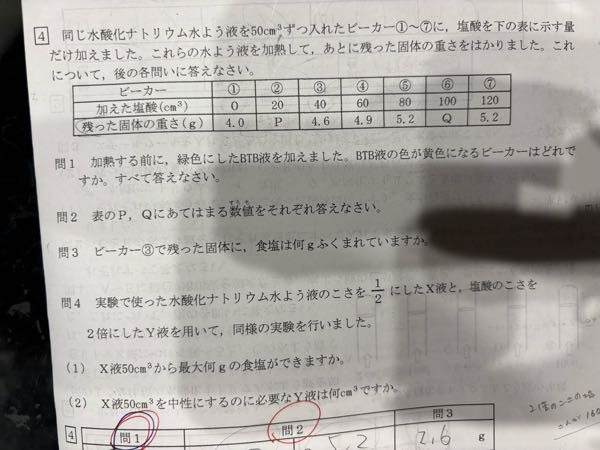 4 同じ水酸化ナトリウム水よう液を50cm³ずつ入れたビーカー①〜⑦に，塩酸を下の表に示す量
だけ加えました。これらの水よう液を加熱して，あとに残った固体の重さをはかりました。これ
について，後の各問いに答えなさい。
ビーカー ① ② ③ ④ ⑤ ⑥ ⑦
加えた塩酸(cm³) 0 20 40 60 80 100 120
残った固体の重さ(g) 4.0 P 4.6 4.9 5.2 Q 5.2
問1 加熱する前に，緑色にしたBTB液を加えました。BTB液の色が黄色になるビーカーはどれで
すか。すべて答えなさい。
問2 表のP，Qにあてはまる数値をそれぞれ答えなさい。
問3 ビーカー③で残った固体に，食塩は何gふくまれていますか。
問4 実験で使った水酸化ナトリウム水よう液のこさを1/2にしたX液と，塩酸のこさを
2倍にしたY液を用いて，同様の実験を行いました。
(1) X液50cm³から最大何gの食塩ができますか。
(2) X液50cm³を中性にするのに必要なY液は何cm³ですか。
4 問1 問2 問3
5.2 2.6 g